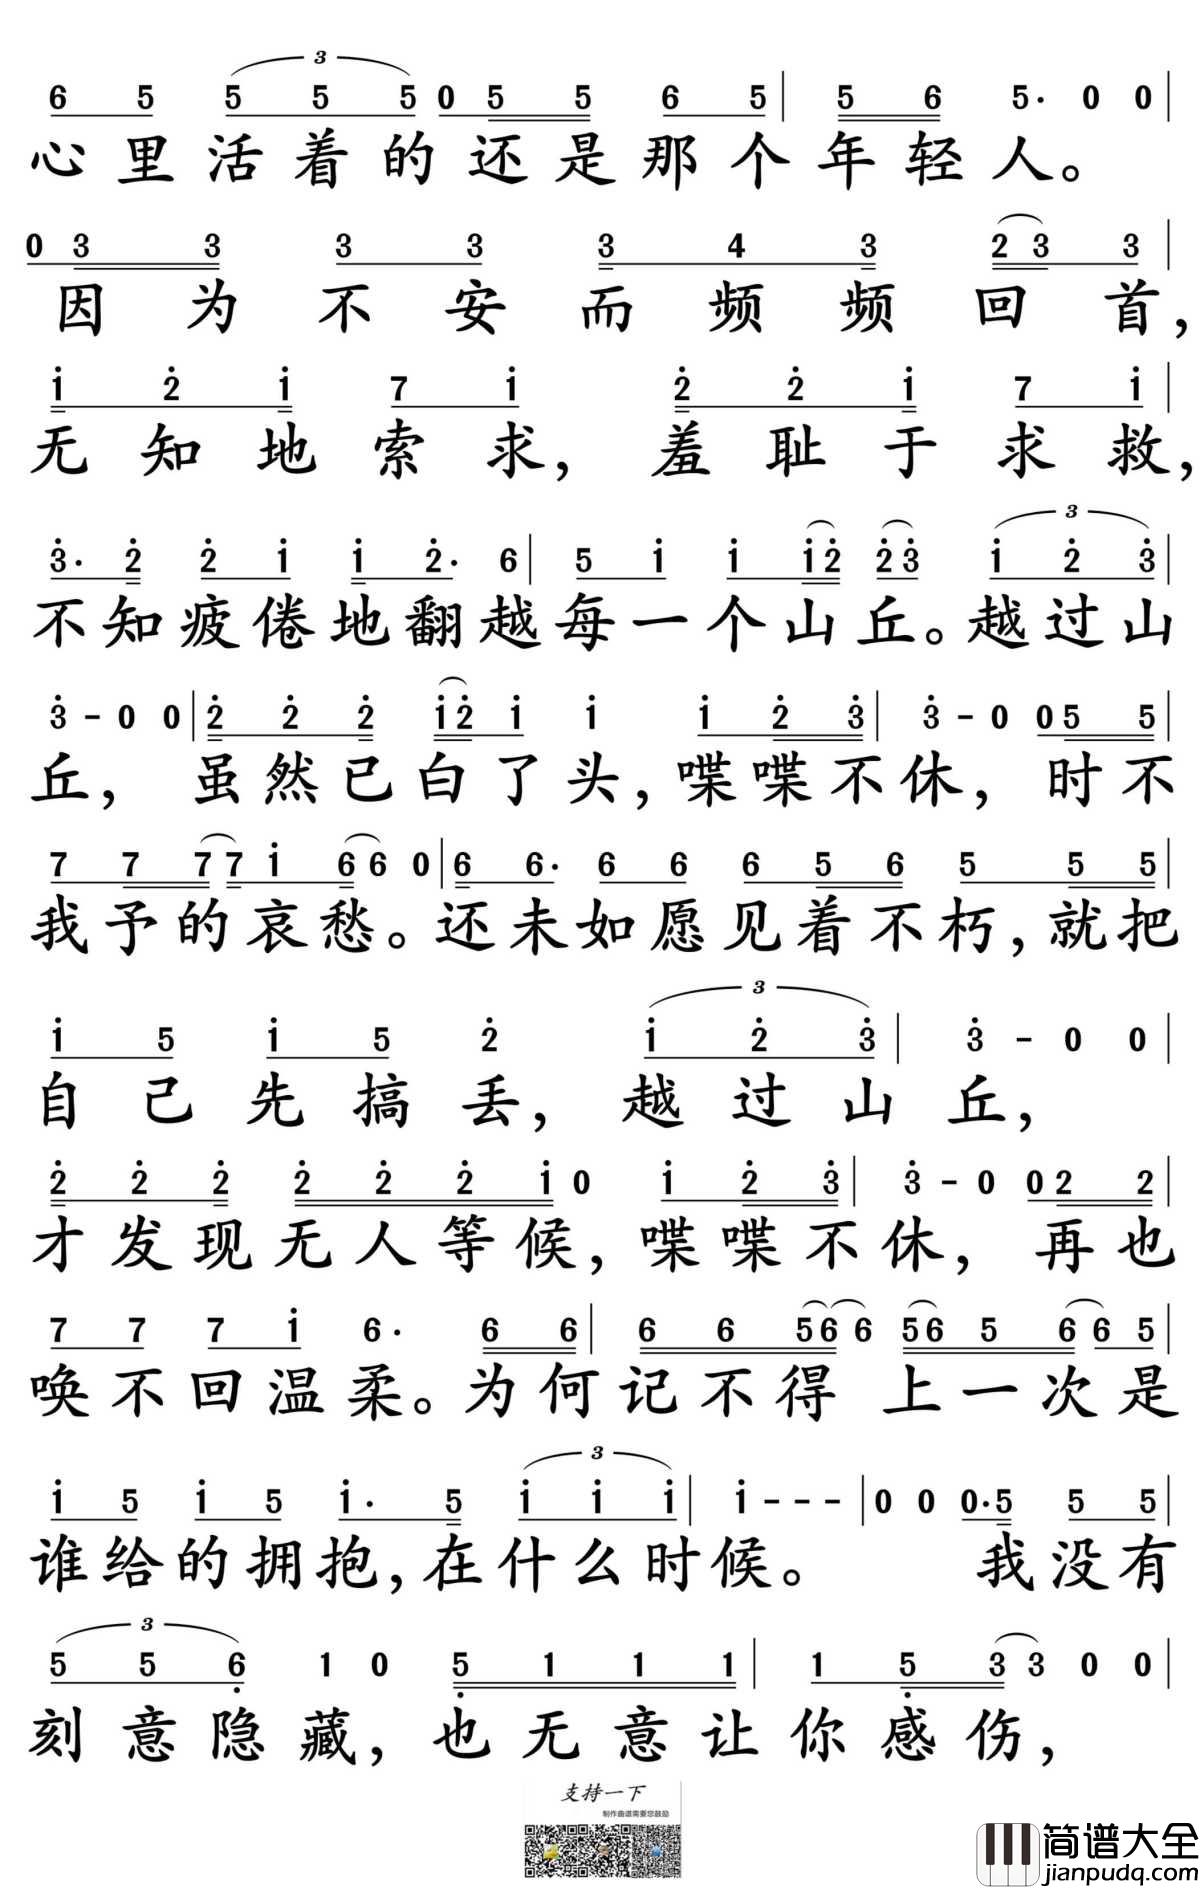 3
6 5 5 5 5 0 5 5 6 5 | 5 6 5· 0 0 |
心里活着的还是那个年轻人。
0 3 3 3 3 3 4 3 2 3 3 |
因为不安而频频回首，
i 2̇ i 7 i 2̇ 2̇ i 7 i |
无知地索求，羞耻于求救，
3
3̇· 2̇ 2̇ i i 2̇· 6 | 5 i i i 2̇ 2̇ 3̇ i 2̇ 3̇ |
不知疲倦地翻越每一个山丘。越过山
3̇ - 0 0 | 2̇ 2̇ 2̇ i 2̇ i i i 2̇ 3̇ | 3̇ - 0 0 5 5 |
丘，虽然已白了头，喋喋不休，时不
7 7 7 7 i 6 6 0 | 6 6· 6 6 6 5 6 5 5 5 |
我予的哀愁。还未如愿见着不朽，就把
3
i 5 i 5 2̇ i 2̇ 3̇ | 3̇ - 0 0 |
自己先搞丢，越过山丘，
2̇ 2̇ 2̇ 2̇ 2̇ 2̇ i 0 i 2̇ 3̇ | 3̇ - 0 0 2 2 |
才发现无人等候，喋喋不休，再也
7 7 7 i 6· 6 6 | 6 6 5 6 6 5 6 5 6 6 5 |
唤不回温柔。为何记不得 上一次是
3
i 5 i 5 i· 5 i i i | i - - - | 0 0 0· 5 5 5 |
谁给的拥抱，在什么时候。 我没有
3
5 5 6̣ 1 0 5̣ 1 1 1 | 1 5̣ 3 3 0 0 |
刻意隐藏，也无意让你感伤，
支持一下
制作曲谱需要您鼓励
简谱大全
jianpudq.com